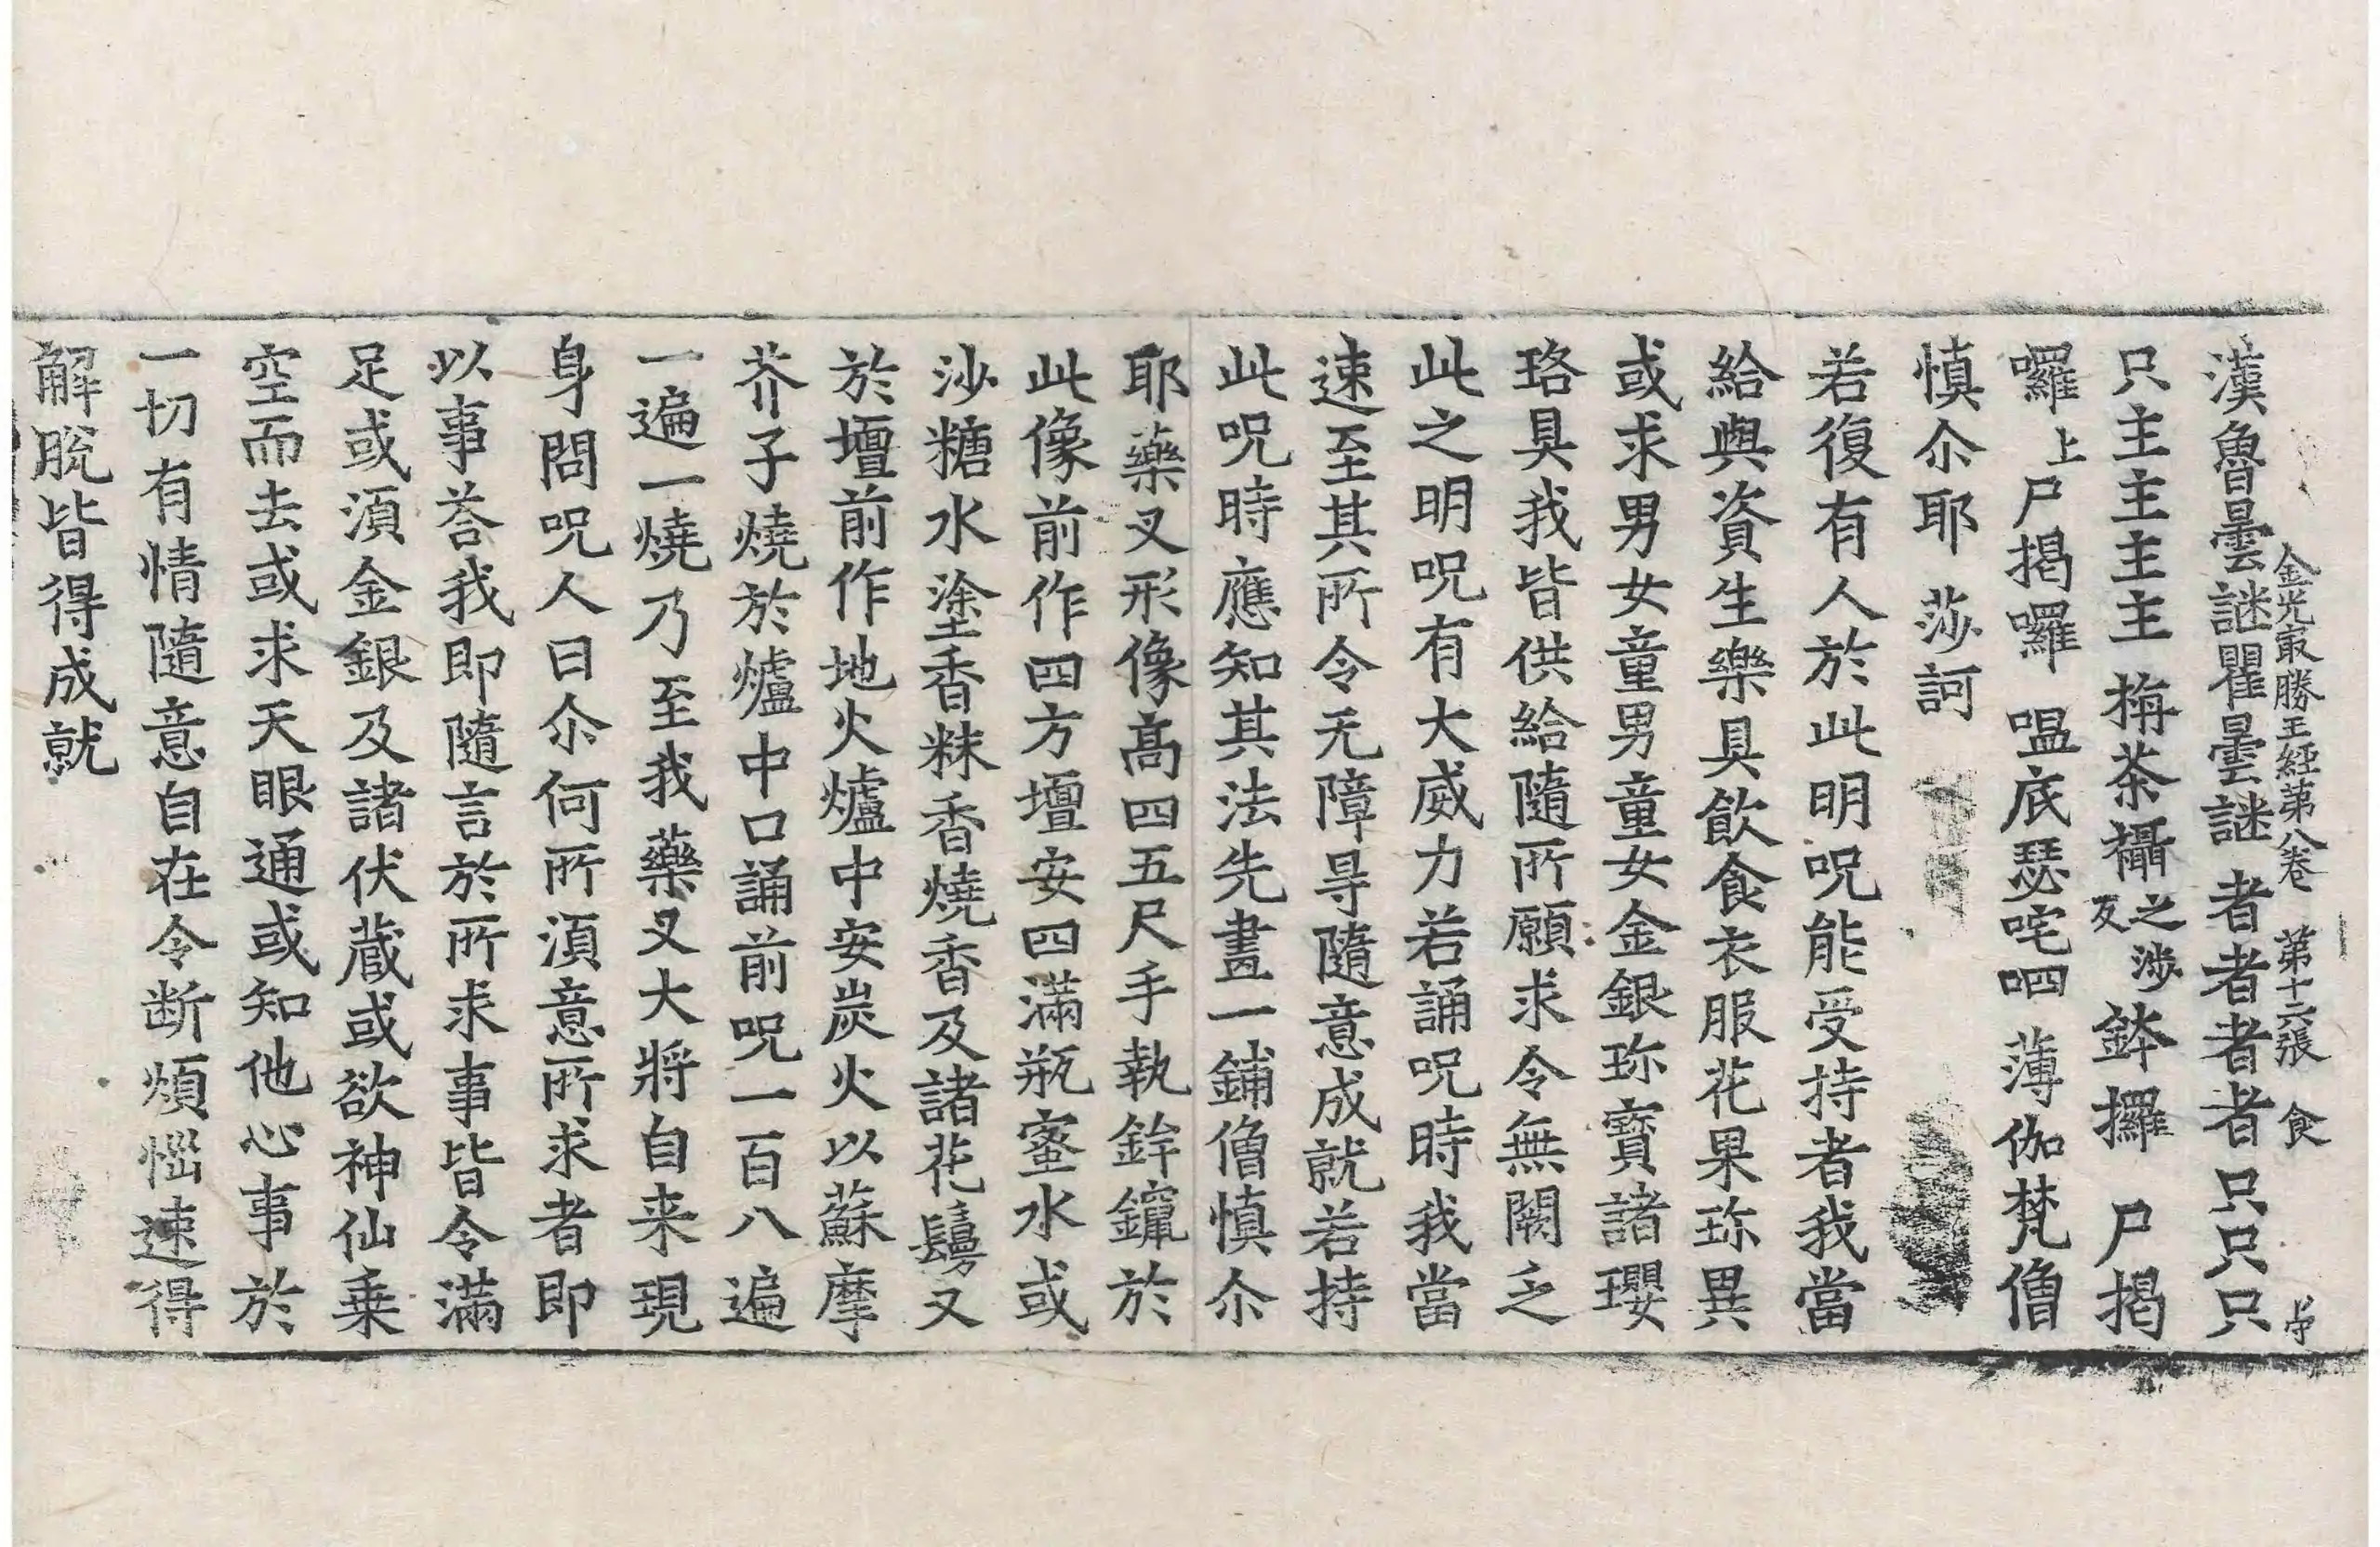 金光最勝王經第八卷 第十六張 食
漢魯曇謎瞿曇謎 者者者者只只只
只主主主主 栴荼攝之涉反 鉢攞 尸揭
囉上 尸揭囉 嗢底瑟咤呬 薄伽梵僧
慎尒耶 莎訶
若復有人於此明呪能受持者我當
給與資生樂具飲食衣服花果珎異
或求男女童男童女金銀珎寶諸瓔
珞具我皆供給隨所願求令無闕乏
此之明呪有大威力若誦呪時我當
速至其所令无障㝵隨意成就若持
此呪時應知其法先畫一鋪僧慎尒
耶藥叉形像高四五尺手執鉾鑹於
此像前作四方壇安四滿瓶蜜水或
沙糖水塗香粖香燒香及諸花鬘又
於壇前作地火爐中安炭火以蘇摩
芥子燒於爐中口誦前呪一百八遍
一遍一燒乃至我藥叉大將自来現
身問呪人曰尒何所須意所求者即
以事荅我即隨言於所求事皆令滿
足或須金銀及諸伏蔵或欲神仙乗
空而去或求天眼通或知他心事於
一切有情隨意自在令断煩惱速得
解脫皆得成就